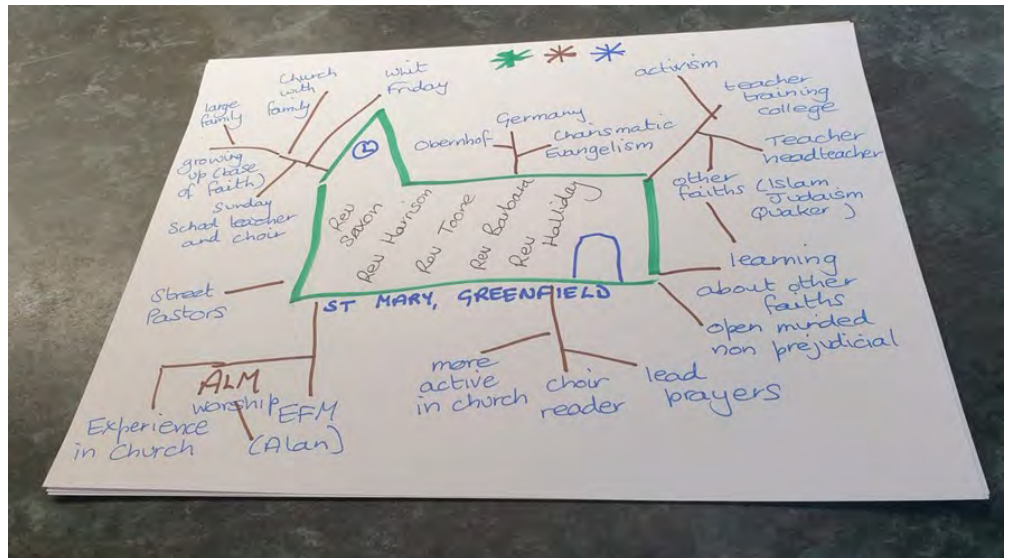 large
family
Church
with
family
whit
Friday
growing
up (base
of faith)
Sunday
School teacher
and choir
Obernhof
Germany
Charismatic
Evangelism
activism
teacher
training
college
Teacher
headteacher
other
faiths (Islam
Judaism
Quaker )
learning
about other
faiths
open minded
non prejudicial
Rev
Saxon
Rev Harrison
Rev Toone
Rev Barbara
Rev
Halliday
ST MARY, GREENFIELD
Street
Pastors
ALM
worship
Experience
in Church
EFM
(Alan)
more
active
in church
choir
reader
lead
prayers